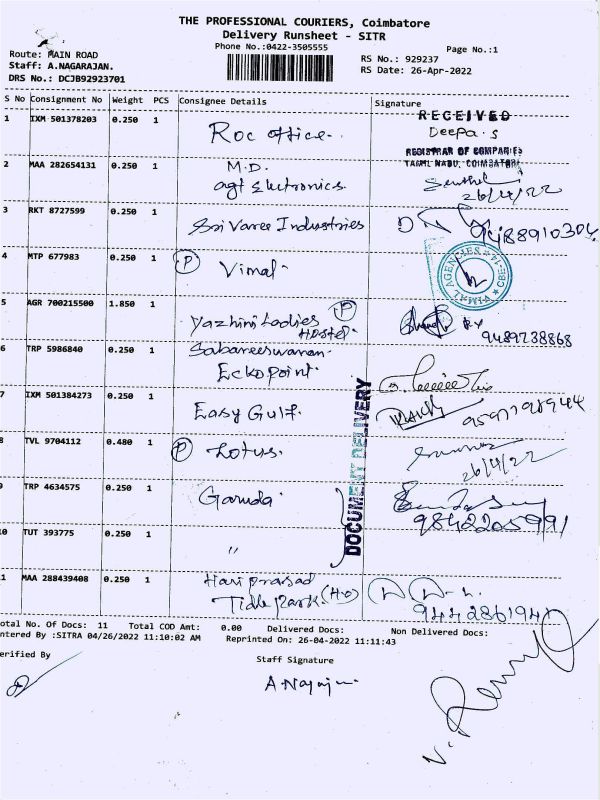 THE PROFESSIONAL COURIERS, Coimbatore
Delivery Runsheet - SITR
Phone No.:0422-3505555
Page No.:1
Route: MAIN ROAD
Staff: A.NAGARAJAN.
DRS No.: DCJB92923701
RS No.: 929237
RS Date: 26-Apr-2022
S No Consignment No Weight PCS Consignee Details Signature
1 IXM 501378203 0.250 1 Roc office.
RECEIVED
Deepa.S
REGISTRAR OF COMPANIES
TAMIL NADU, COIMBATORE
2 MAA 282654131 0.250 1 M.D.
agt Electronics.
26/4/22
3 RKT 8727599 0.250 1 Sri Varee Industries
9488910304
4 MTP 677983 0.250 1 (P) Vimal
VIMAL AGENCIES CBE-14
5 AGR 700215500 1.850 1 Yazhini Ladies (P)
Hostel.
9489738868
6 TRP 5986840 0.250 1 Sabareeswaran.
Eckopoint.
7 IXM 501384273 0.250 1 Easy Gulf.
DOCUMENT DELIVERY
8 TVL 9704112 0.480 1 (P) Lotus.
26/4/22
9 TRP 4634575 0.250 1 Garuda
9842205991
10 TUT 393775 0.250 1 "
11 MAA 288439408 0.250 1 Hari prasad
Tidle Park. (H.O)
Total No. Of Docs: 11 Total COD Amt: 0.00 Delivered Docs: Non Delivered Docs:
Entered By :SITRA 04/26/2022 11:10:02 AM Reprinted On: 26-04-2022 11:11:43
Verified By
Staff Signature